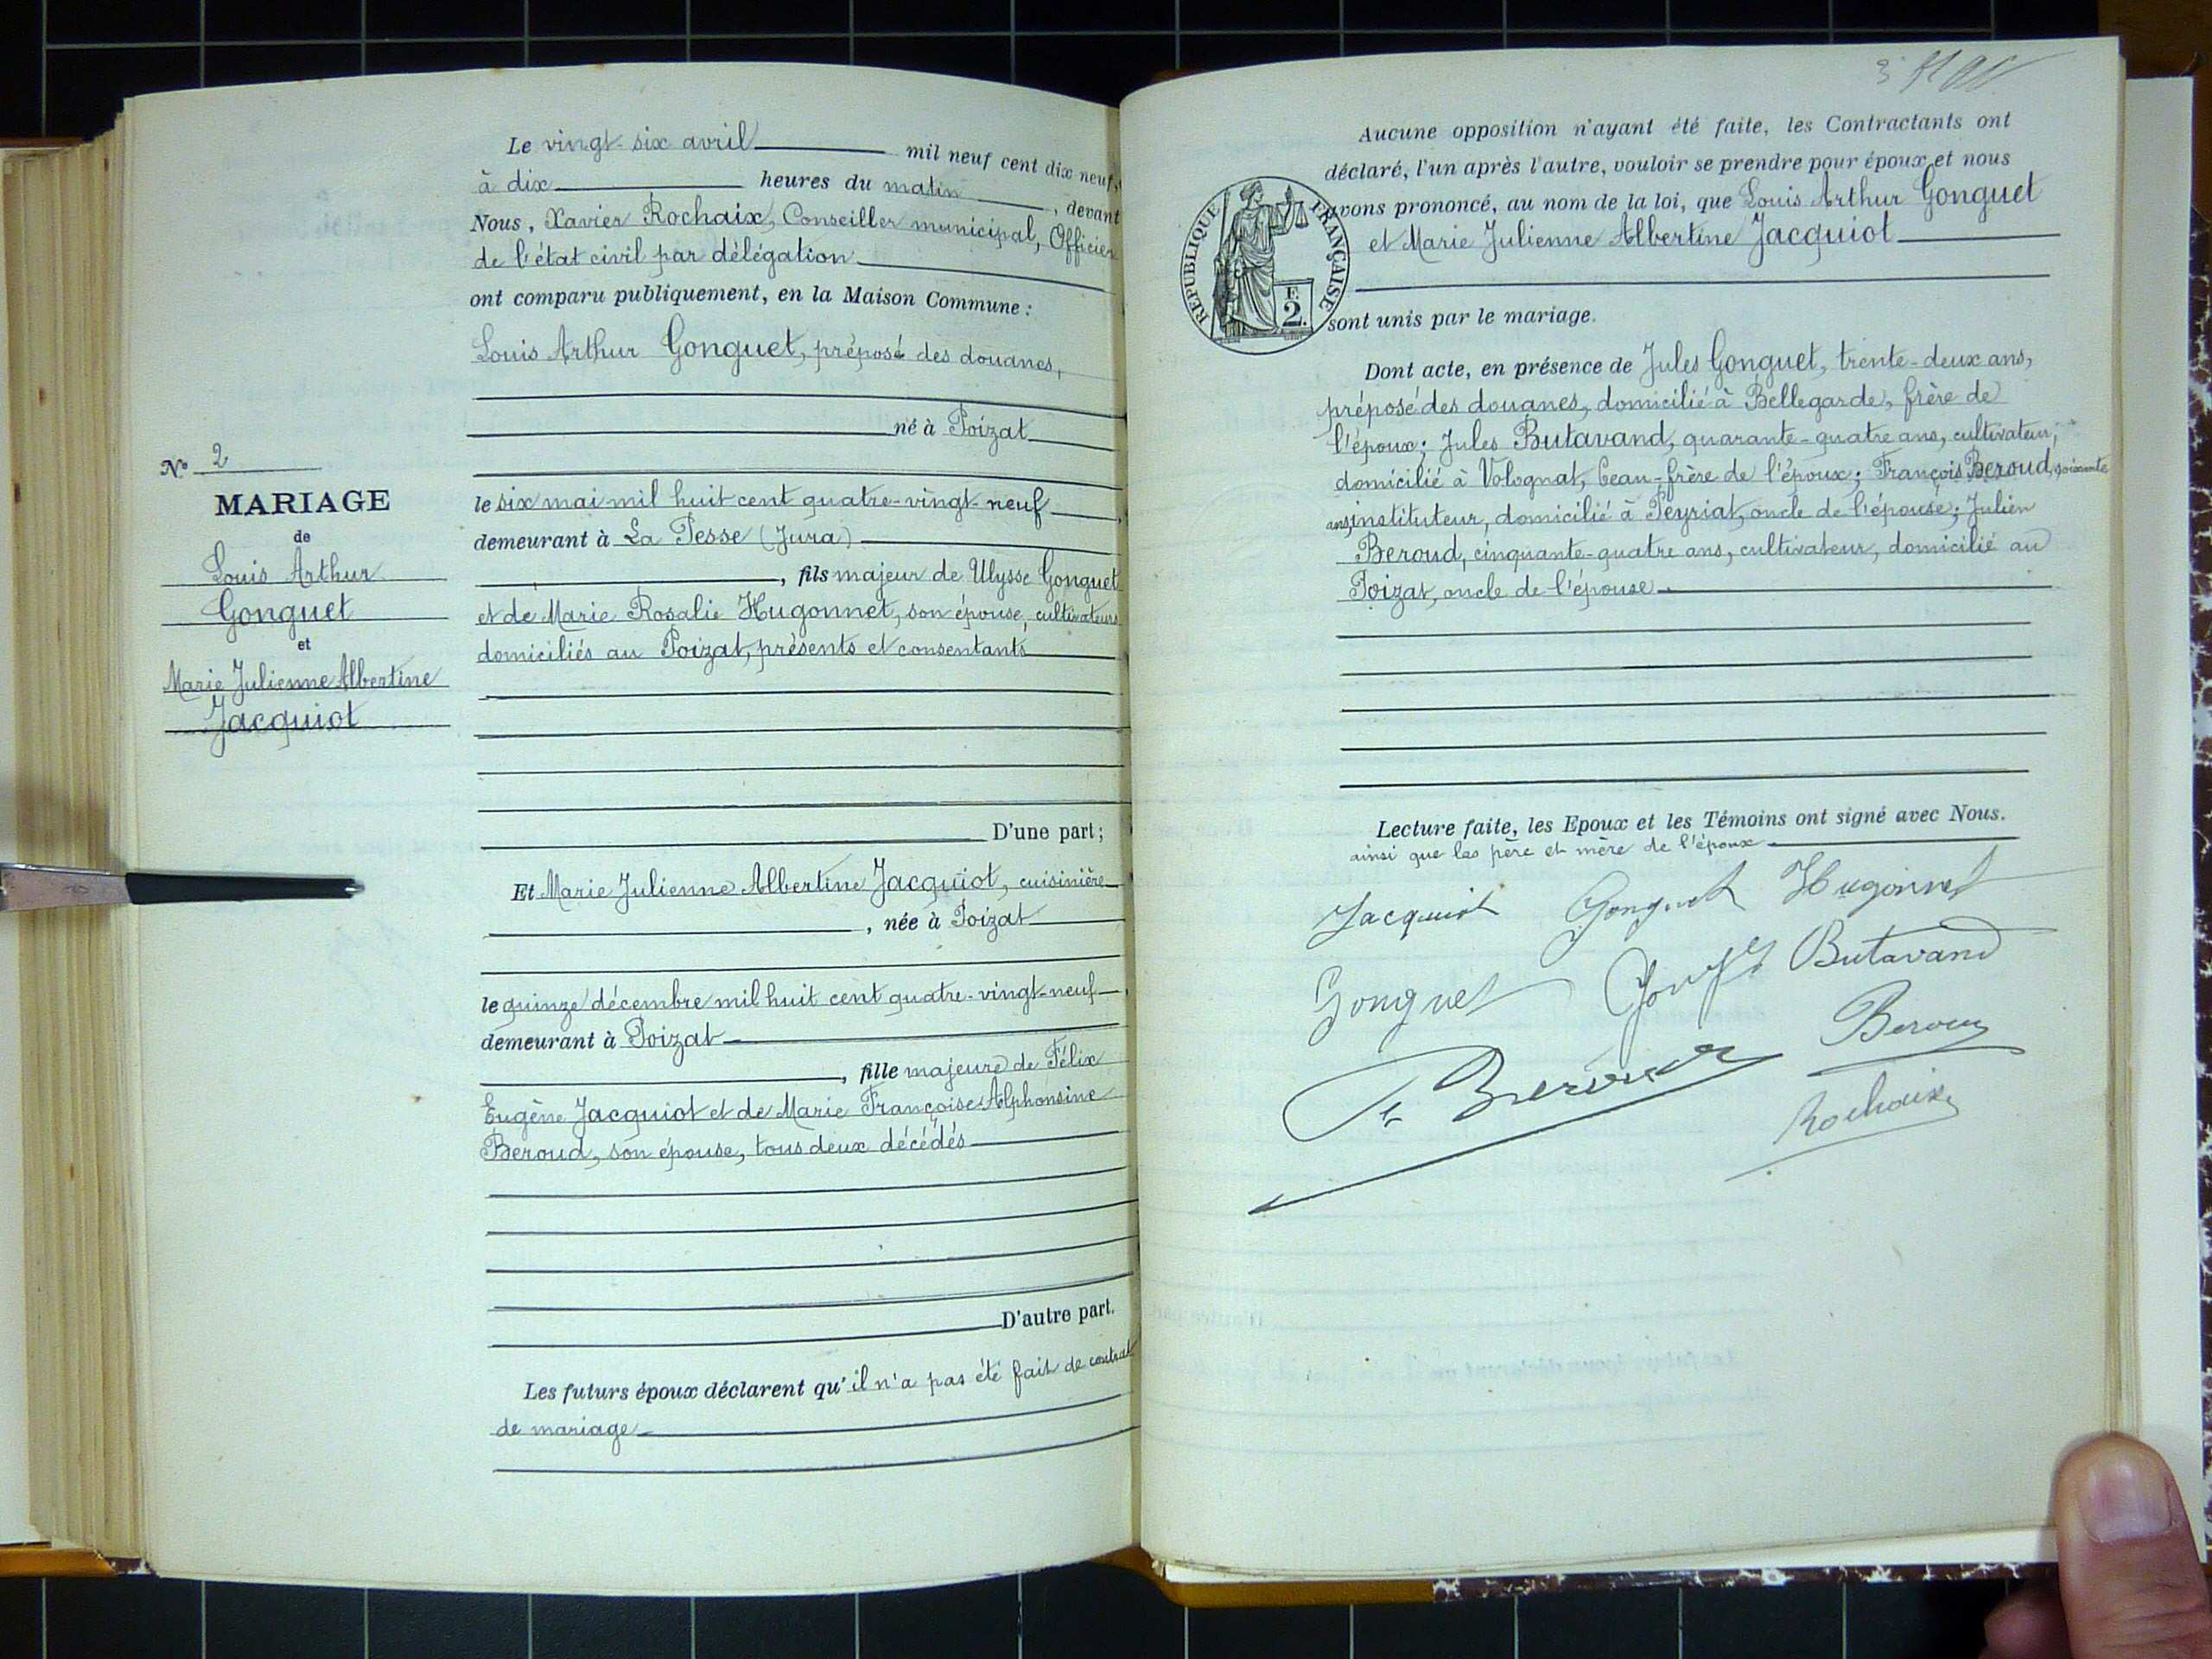 Le vingt-six avril mil neuf cent dix neuf,
à dix heures du matin, devant
Nous, Xavier Rochaix, Conseiller municipal, Officier
de l'état civil par délégation
ont comparu publiquement, en la Maison Commune :
Louis Arthur Gonguet, préposé des douanes,
né à Poizat
le six mai mil huit cent quatre-vingt-neuf,
demeurant à La Pesse (Jura)
, fils majeur de Ulysse Gonguet
et de Marie Rosalie Hugonnet, son épouse, cultivateurs
domiciliés au Poizat, présents et consentants
D'une part ;
Nº 2
MARIAGE
de
Louis Arthur
Gonguet
et
Marie Julienne Albertine
Jacquiot
Et Marie Julienne Albertine Jacquiot, cuisinière
, née à Poizat
le quinze décembre mil huit cent quatre-vingt-neuf,
demeurant à Poizat
, fille majeure de Félix
Eugène Jacquiot et de Marie Françoise Alphonsine
Beroud, son épouse, tous deux décédés
D'autre part.
Les futurs époux déclarent qu'il n'a pas été fait de contrat
de mariage
Aucune opposition n'ayant été faite, les Contractants ont
déclaré, l'un après l'autre, vouloir se prendre pour époux et nous
avons prononcé, au nom de la loi, que Louis Arthur Gonguet
et Marie Julienne Albertine Jacquiot
RÉPUBLIQUE FRANÇAISE
F.
2.
sont unis par le mariage.
Dont acte, en présence de Jules Gonguet, trente-deux ans,
préposé des douanes, domicilié à Bellegarde, frère de
l'époux ; Jules Butavand, quarante-quatre ans, cultivateur,
domicilié à Volognat, beau-frère de l'époux ; François Beroud, soixante
ans, instituteur, domicilié à Peyriat, oncle de l'épouse ; Julien
Beroud, cinquante-quatre ans, cultivateur, domicilié au
Poizat, oncle de l'épouse.
Lecture faite, les Epoux et les Témoins ont signé avec Nous.
ainsi que les père et mère de l'époux.
Jacquiot Gonguet Hugonnet
Gonguet Butavand
Beroud
Rochaix